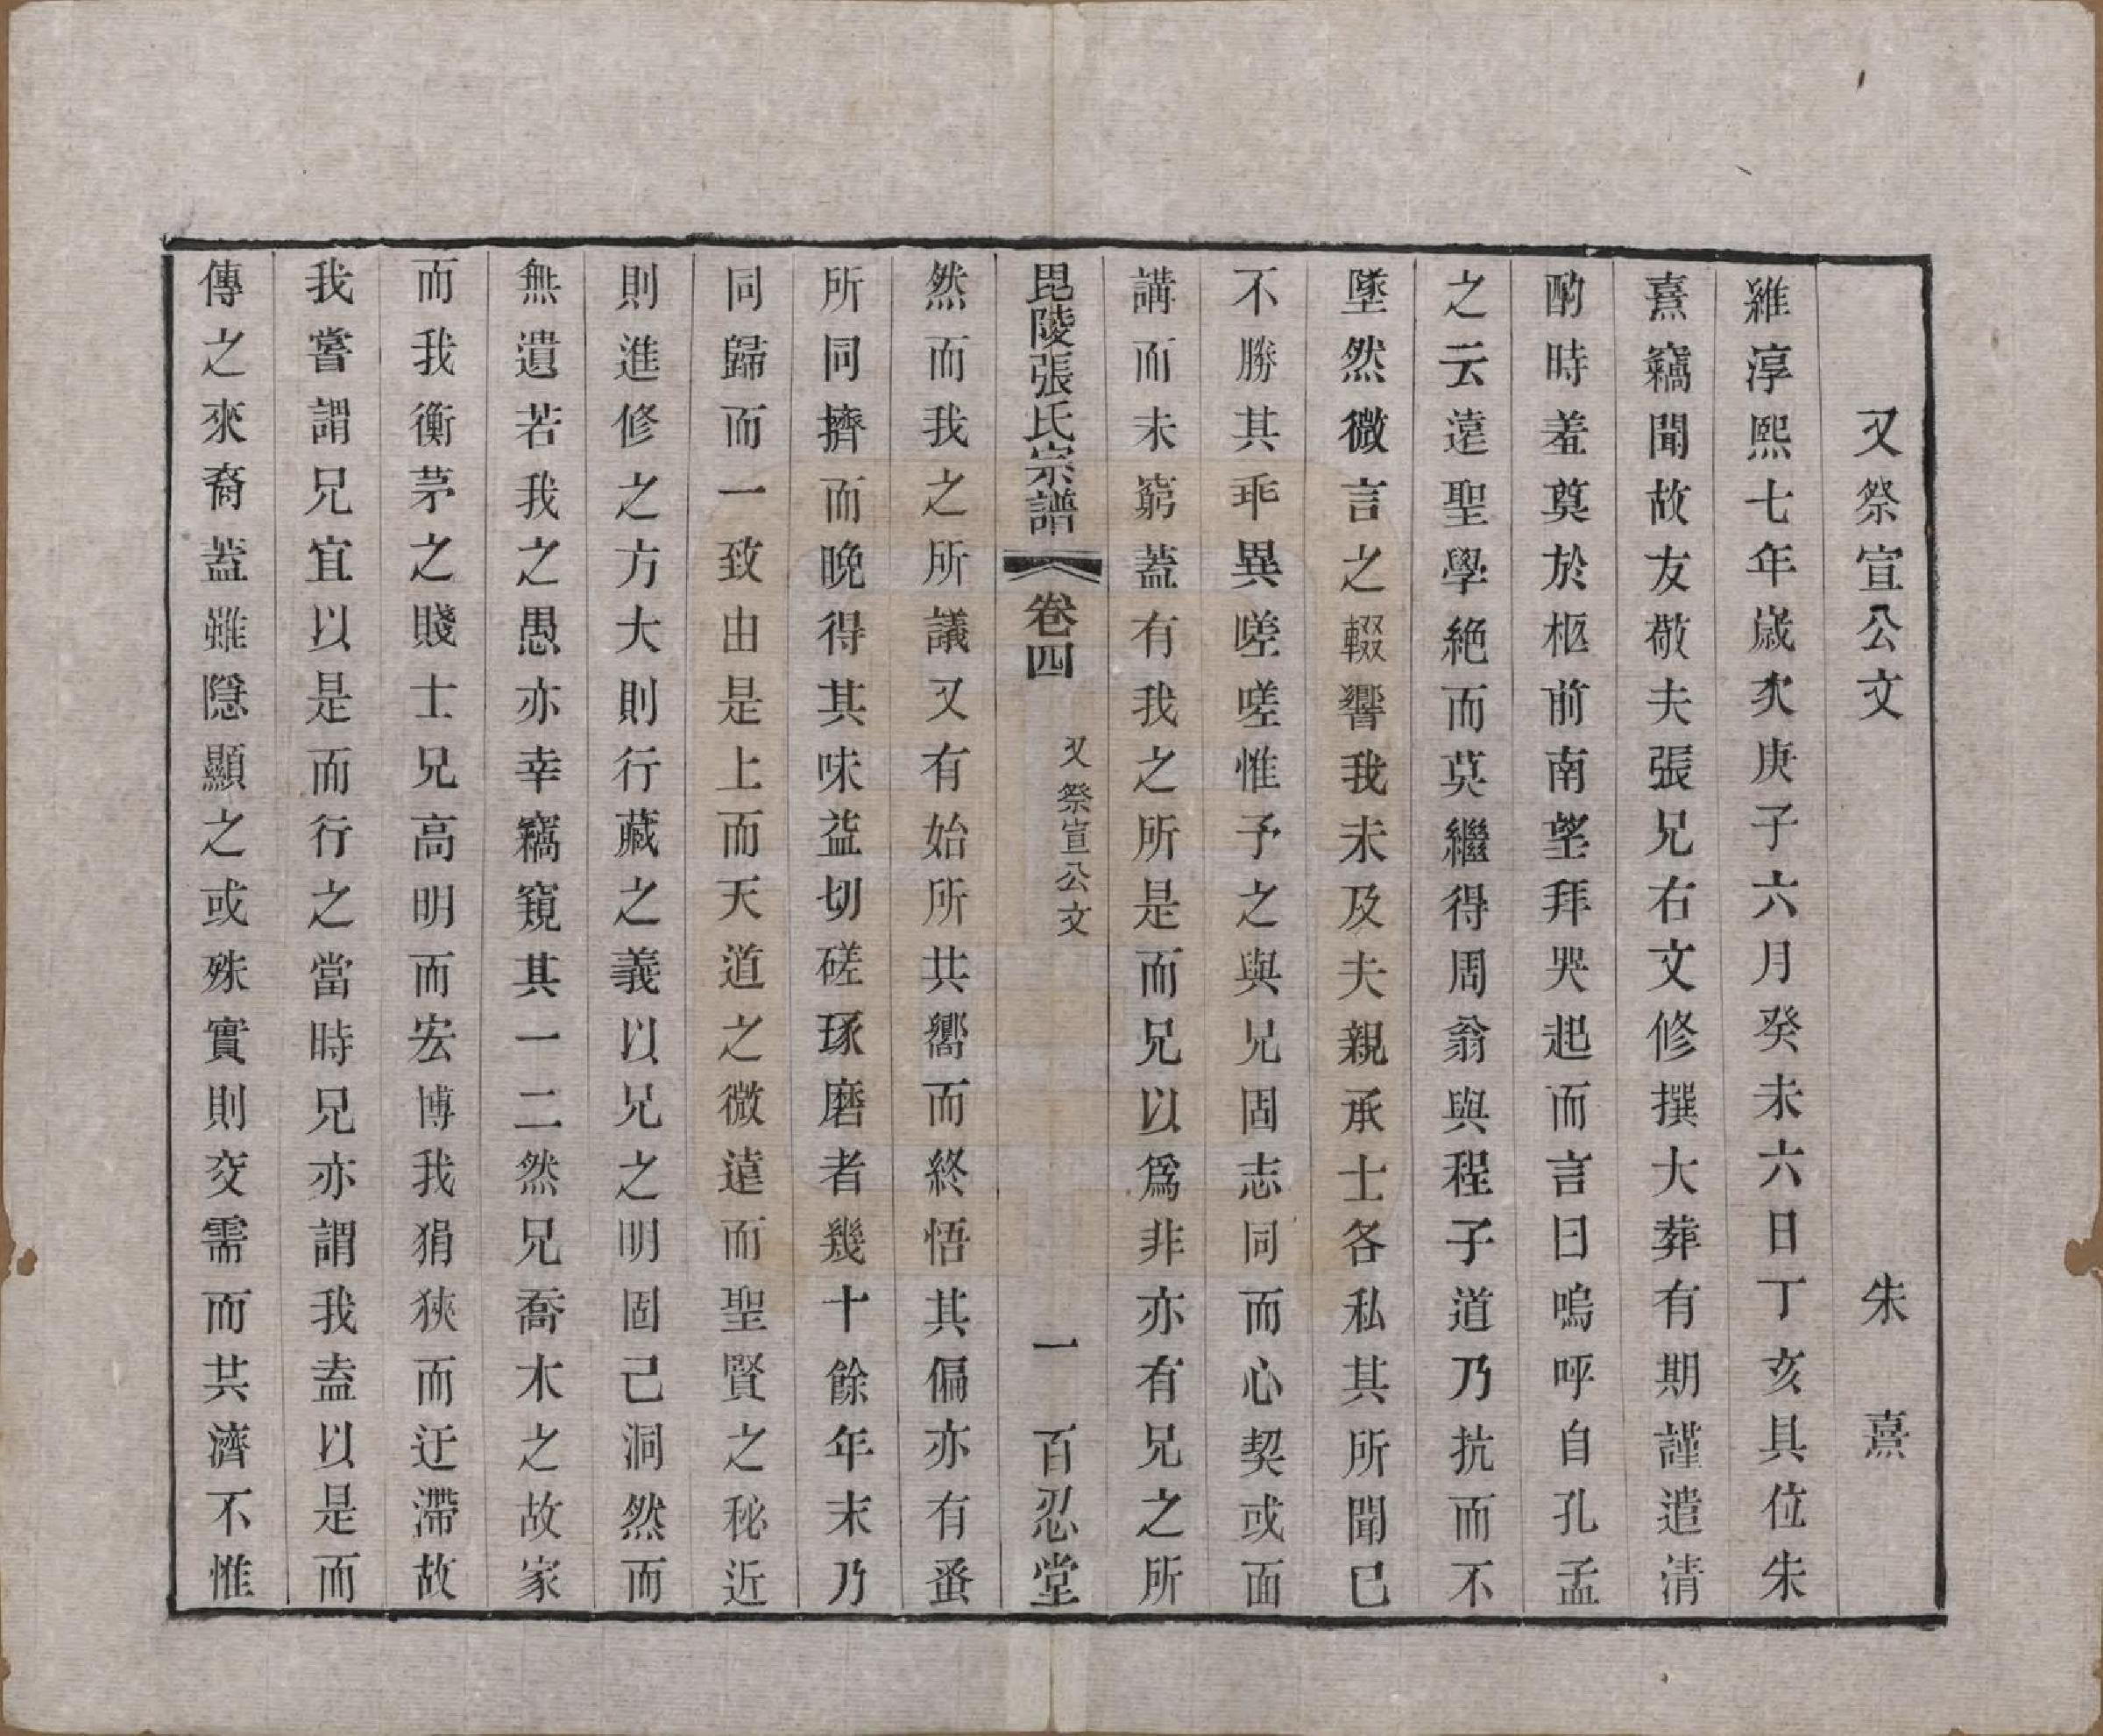 又祭宣公文　朱熹
維淳熙七年歲次庚子六月癸未六日丁亥具位朱
熹竊聞故友敬夫張兄右文修撰大葬有期謹遣清
酌時羞奠於柩前南望拜哭起而言曰嗚呼自孔孟
之云遠聖學絶而莫繼得周翁與程子道乃抗而不
墜然微言之輟響我未及夫親承士各私其所聞已
不勝其乖異嗟嗟惟予之與兄固志同而心契或面
講而未窮蓋有我之所是而兄以爲非亦有兄之所
毘陵張氏宗譜　卷四　又祭宣公文　一　百忍堂
然而我之所議又有始所共嚮而終悟其偏亦有蚤
所同擠而晚得其味益切磋琢磨者幾十餘年末乃
同歸而一致由是上而天道之微遠而聖賢之秘近
則進修之方大則行藏之義以兄之明固已洞然而
無遺若我之愚亦幸竊窺其一二然兄喬木之故家
而我衡茅之賤士兄高明而宏博我狷狹而迂滯故
我嘗謂兄宜以是而行之當時兄亦謂我盍以是而
傳之來裔蓋雖隱顯之或殊實則交需而共濟不惟